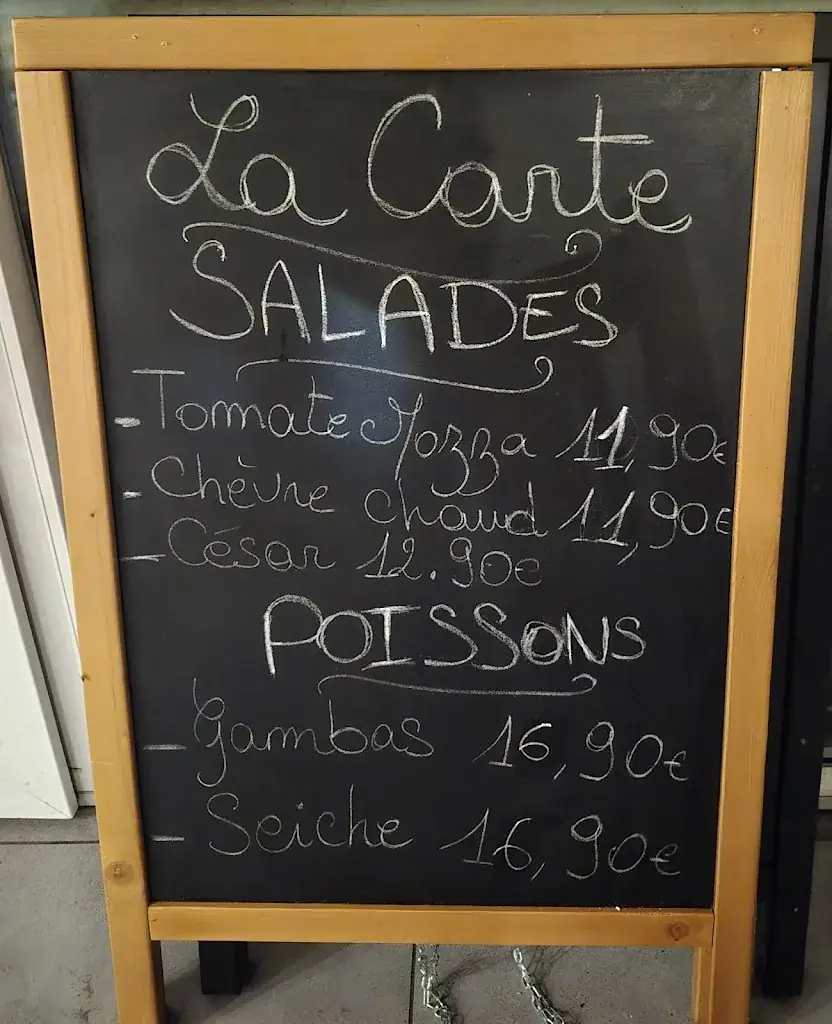 La Carte
SALADES
- Tomate Mozza 11,90€
- Chèvre chaud 11,90€
- César 12.90€
POISSONS
- Gambas 16,90€
- Seiche 16,90€